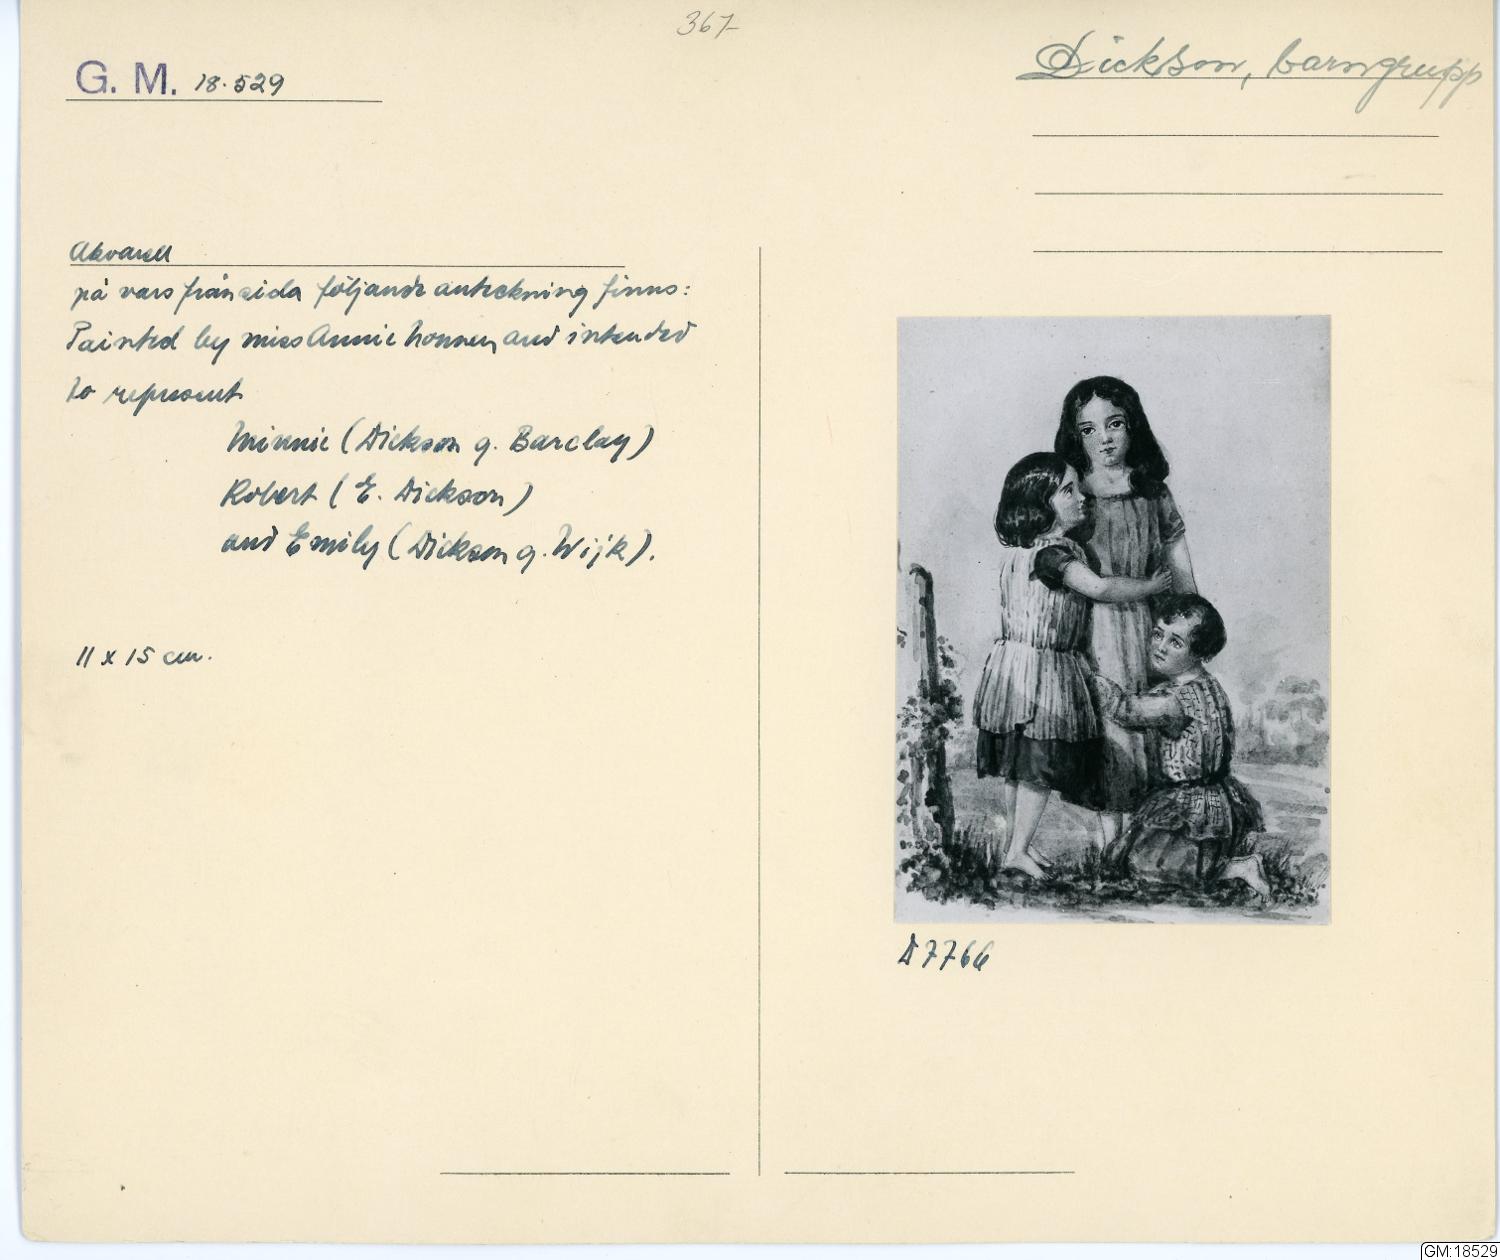 367-
G. M. 18.529
Dickson, barngrupp
Akvarell
på vars frånsida följande anteckning finns:
Painted by miss Annie and intended
to represent
Minnie (Dickson g. Barclay)
Robert (E. Dickson)
and Emily (Dickson g. Wijk).
11 x 15 cm.
D7766
GM:18529